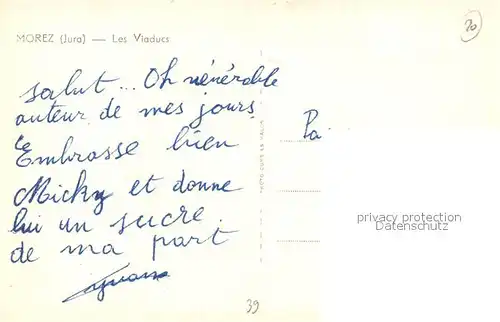 MOREZ (Jura) — Les Viaducs
20
salut... Oh vénérable
auteur de mes jours
Embrasse bien
Micky et donne
lui un sucre
de ma part
Pa
privacy protection
Datenschutz
39